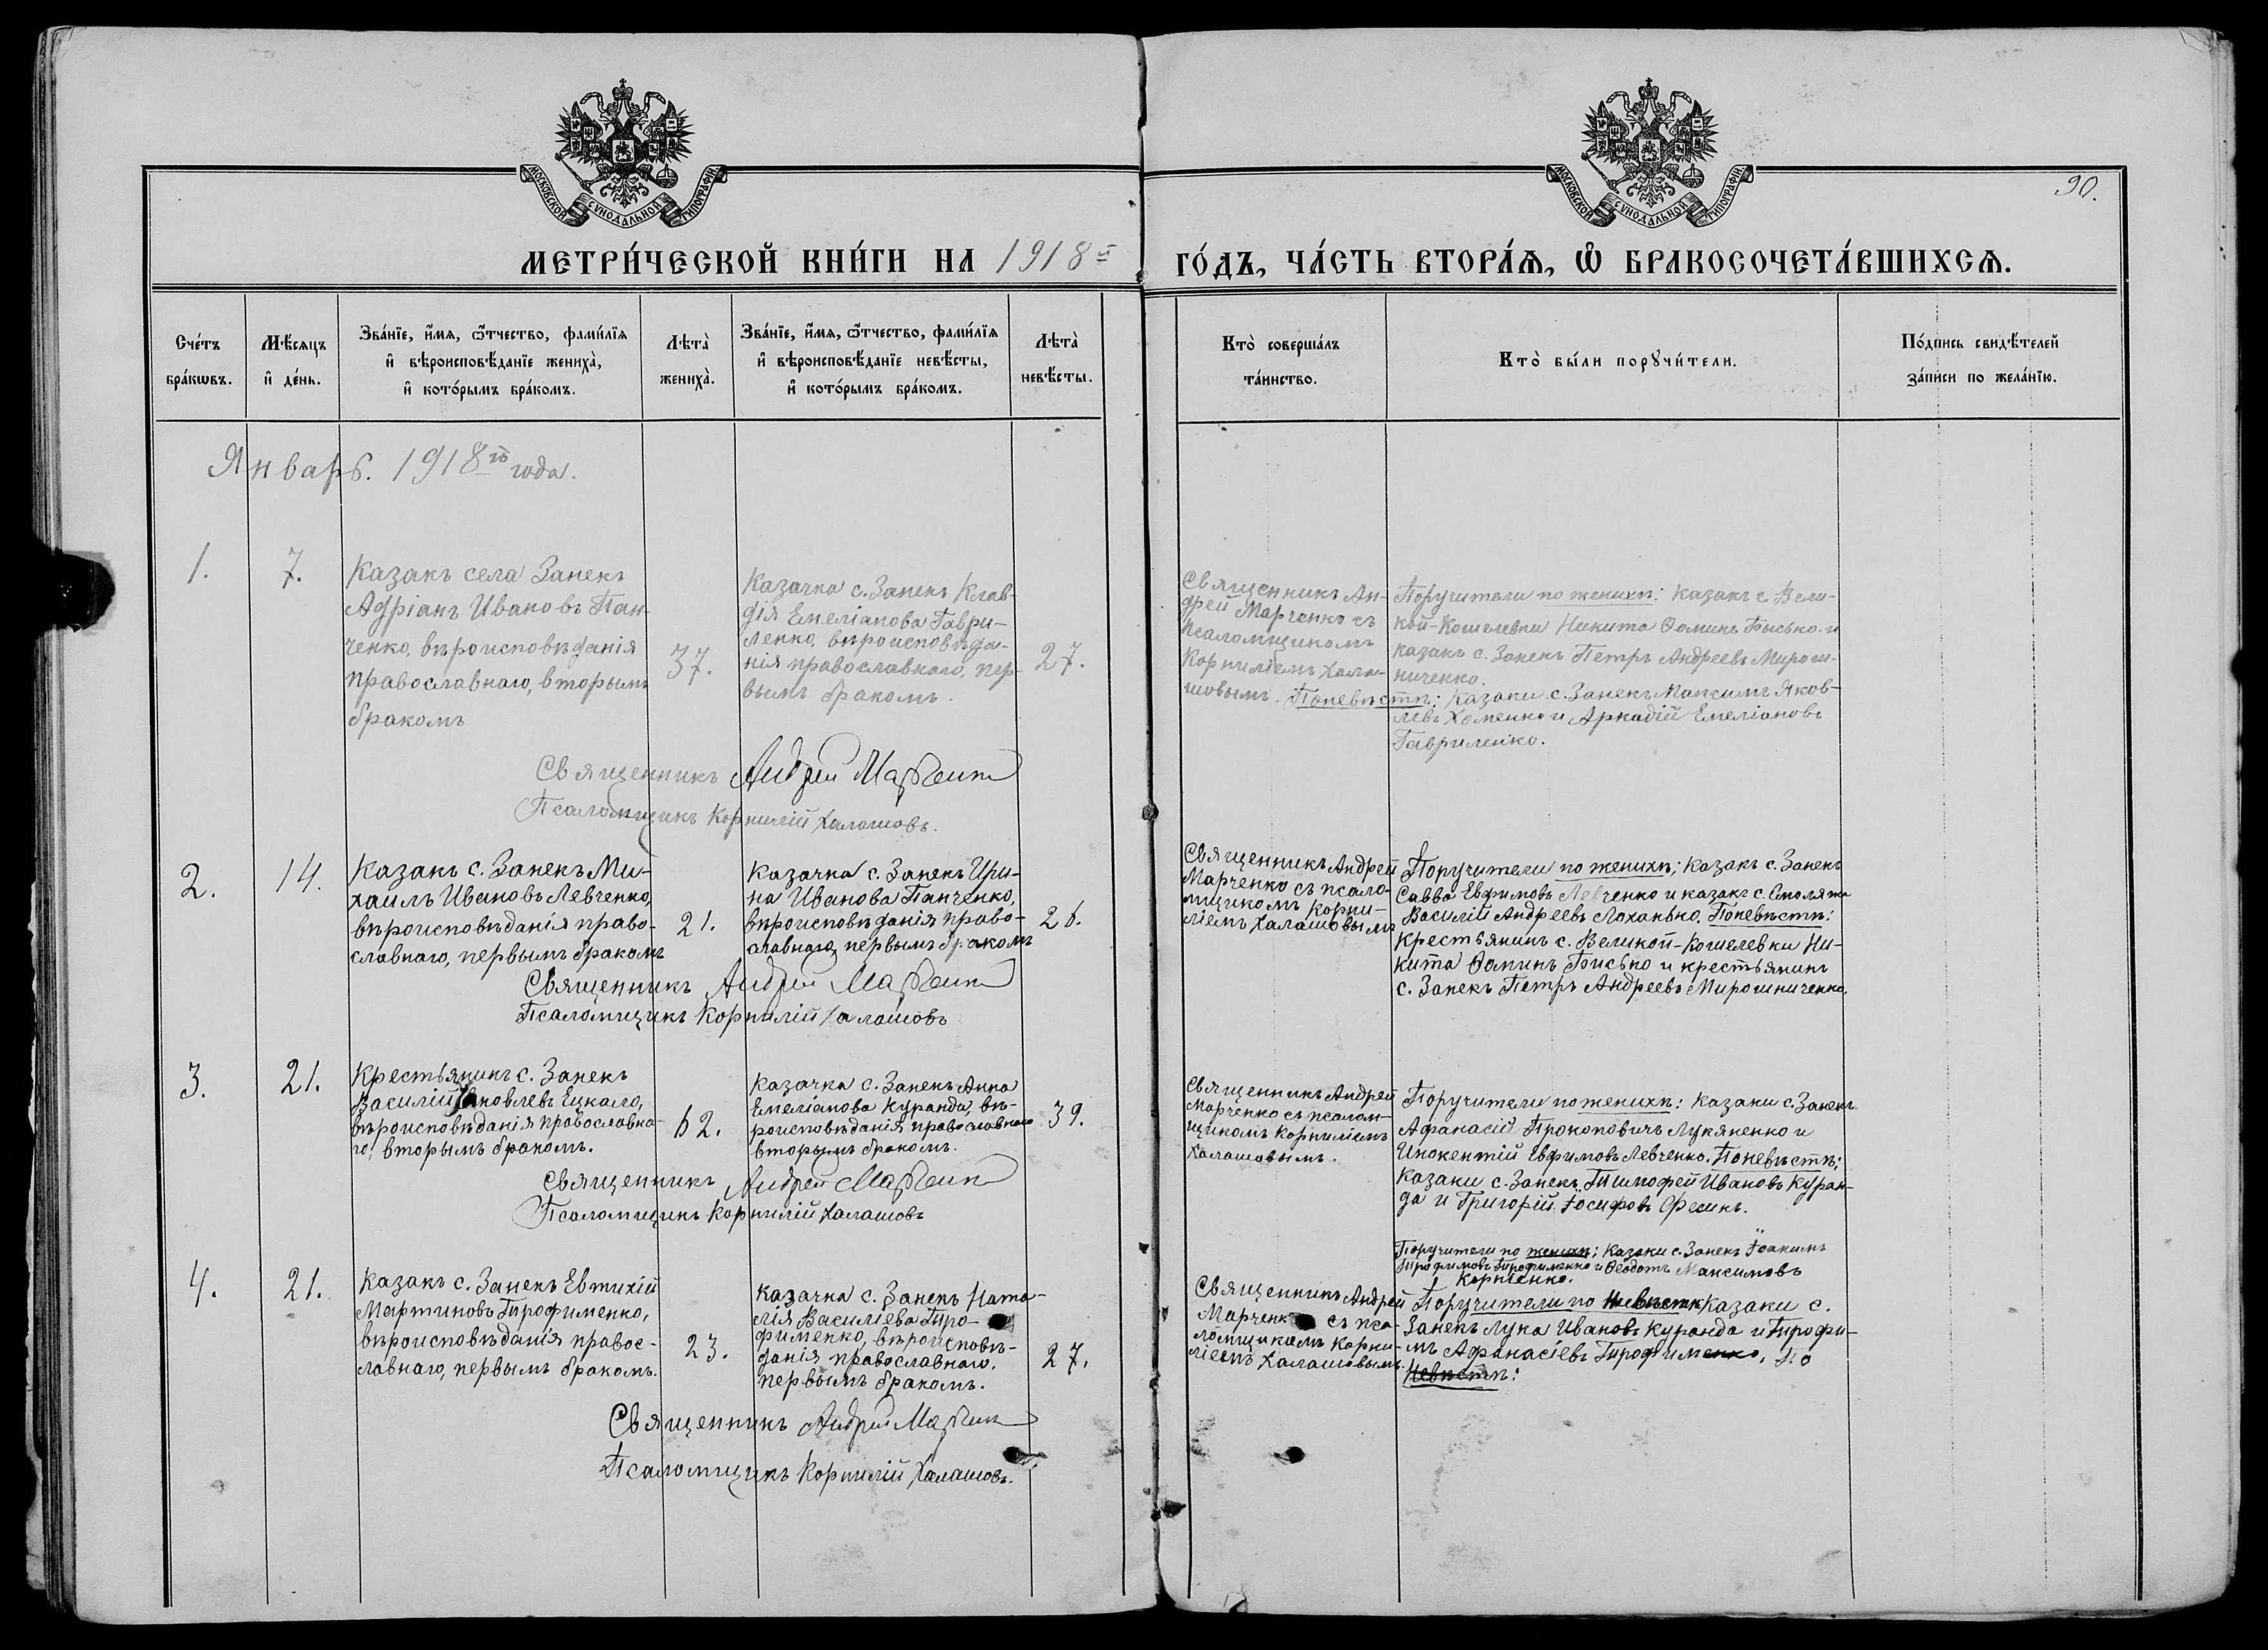 МОСКОВСКОЙ СУНОДАЛЬНОЙ ТИПОГРАФІИ
МОСКОВСКОЙ СУНОДАЛЬНОЙ ТИПОГРАФІИ
90.
МЕТРИ́ЧЕСКОЙ КНИ́ГИ НА 1918й ГО́ДЪ, ЧА́СТЬ ВТОРА́Ѧ, Ѽ БРАКОСОЧЕТА́ВШИХСѦ.
Сче́тъ
бра́кωвъ.
Мѣ́сѧцъ
и҆ де́нь.
Зва́нїе, и҆́мѧ, ѻ҆́тчество, фами́лїѧ
и҆ вѣроисповѣ́данїе жениха̀,
и҆ кото́рымъ бра́комъ.
Лѣта̀
жениха̀.
Зва́нїе, и҆́мѧ, ѻ҆́тчество, фами́лїѧ
и҆ вѣроисповѣ́данїе невѣ́сты,
и҆ кото́рымъ бра́комъ.
Лѣта̀
невѣ́сты.
Кто̀ соверша́лъ
та́инство.
Кто̀ бы́ли порꙋчи́тели.
По́дпись свидѣ́телей
за́писи по жела́нїю.
Январь. 1918го года.
1.
7.
Казакъ села Занекъ
Адріанъ Ивановъ Пан-
ченко, вѣроисповѣданія
православнаго, вторымъ
бракомъ
37.
Казачка с. Занекъ Клав-
дія Емеліанова Гаври-
ленко, вѣроисповѣда-
нія православнаго, пер-
вымъ бракомъ.
27.
Священникъ Ан-
дрей Марченко съ
псаломщикомъ
Корниліемъ Хала-
шовымъ.
Поручители по женихѣ: казакъ с. Вели-
кой-Кошелевки Никита Ѳоминъ Бисько и
казакъ с. Занекъ Петръ Андреевъ Мирош-
ниченко.
По невѣстѣ: казаки с. Занекъ Максимъ Яков-
левъ Хоменко и Аркадій Емеліановъ
Гавриленко.
Священникъ Андрей Марченко
Псаломщикъ Корнилій Халашовъ.
2.
14.
Казакъ с. Занекъ Ми-
хаилъ Ивановъ Левченко,
вѣроисповѣданія право-
славнаго, первымъ бракомъ
21.
Казачка с. Занекъ Ири-
на Иванова Панченко,
вѣроисповѣданія право-
славнаго, первымъ бракомъ
26.
Священникъ Андрей
Марченко съ псало-
мщикомъ Корни-
ліемъ Халашовымъ
Поручители по женихѣ; казакъ с. Занекъ
Савва Евфимовъ Левченко и казакъ с.
Василій Андреевъ По невѣстѣ:
крестьянинъ с. Великой-Кошелевки Ни-
кита Ѳоминъ Бисько и крестьянинъ
с. Занекъ Петръ Андреевъ Мирошниченко.
Священникъ Андрей Марченко
Псаломщикъ Корнилій Халашовъ
3.
21.
Крестьянинъ с. Занекъ
Василій Яковлевъ Ецкало,
вѣроисповѣданія православна-
го, вторымъ бракомъ.
62.
Казачка с. Занекъ Анна
Емеліанова Куранда, вѣ-
роисповѣданія православнаго
вторымъ бракомъ.
39.
Священникъ Андрей
Марченко съ псалом-
щикомъ Корниліемъ
Халашовымъ.
Поручители по женихѣ: казаки с. Занекъ
Афанасій Прокоповичъ Лукяненко и
Инокентій Евфимовъ Левченко. По невѣстѣ;
казаки с. Занекъ, Тимофей Ивановъ Куран-
да и Григорій Іосифовъ Фесинъ.
Священникъ Андрей Марченко
Псаломщикъ Корнилій Халашовъ
4.
21.
Казакъ с. Занекъ Евтихій
Мартиновъ Трофименко,
вѣроисповѣданія правос-
лавнаго, первымъ бракомъ.
23.
Казачка с. Занекъ Ната-
лія Василіева Тро-
фименко, вѣроисповѣ-
данія православнаго,
первымъ бракомъ.
27.
Священникъ Андрей
Марченко съ пса-
ломщикомъ Корни-
ліемъ Халашовымъ.
Поручители по женихѣ; казаки с. Занекъ Іоакимъ
Трофимовъ Трофименко и Ѳеодотъ Максимовъ
Корніенко.
Поручители по невѣстѣ казаки с.
Занекъ Лука Ивановъ Куранда и Трофи-
мъ Афанасіевъ Трофименко, По
невѣстѣ:
Священникъ Андрей Марченко
Псаломщикъ Корнилій Халашовъ.